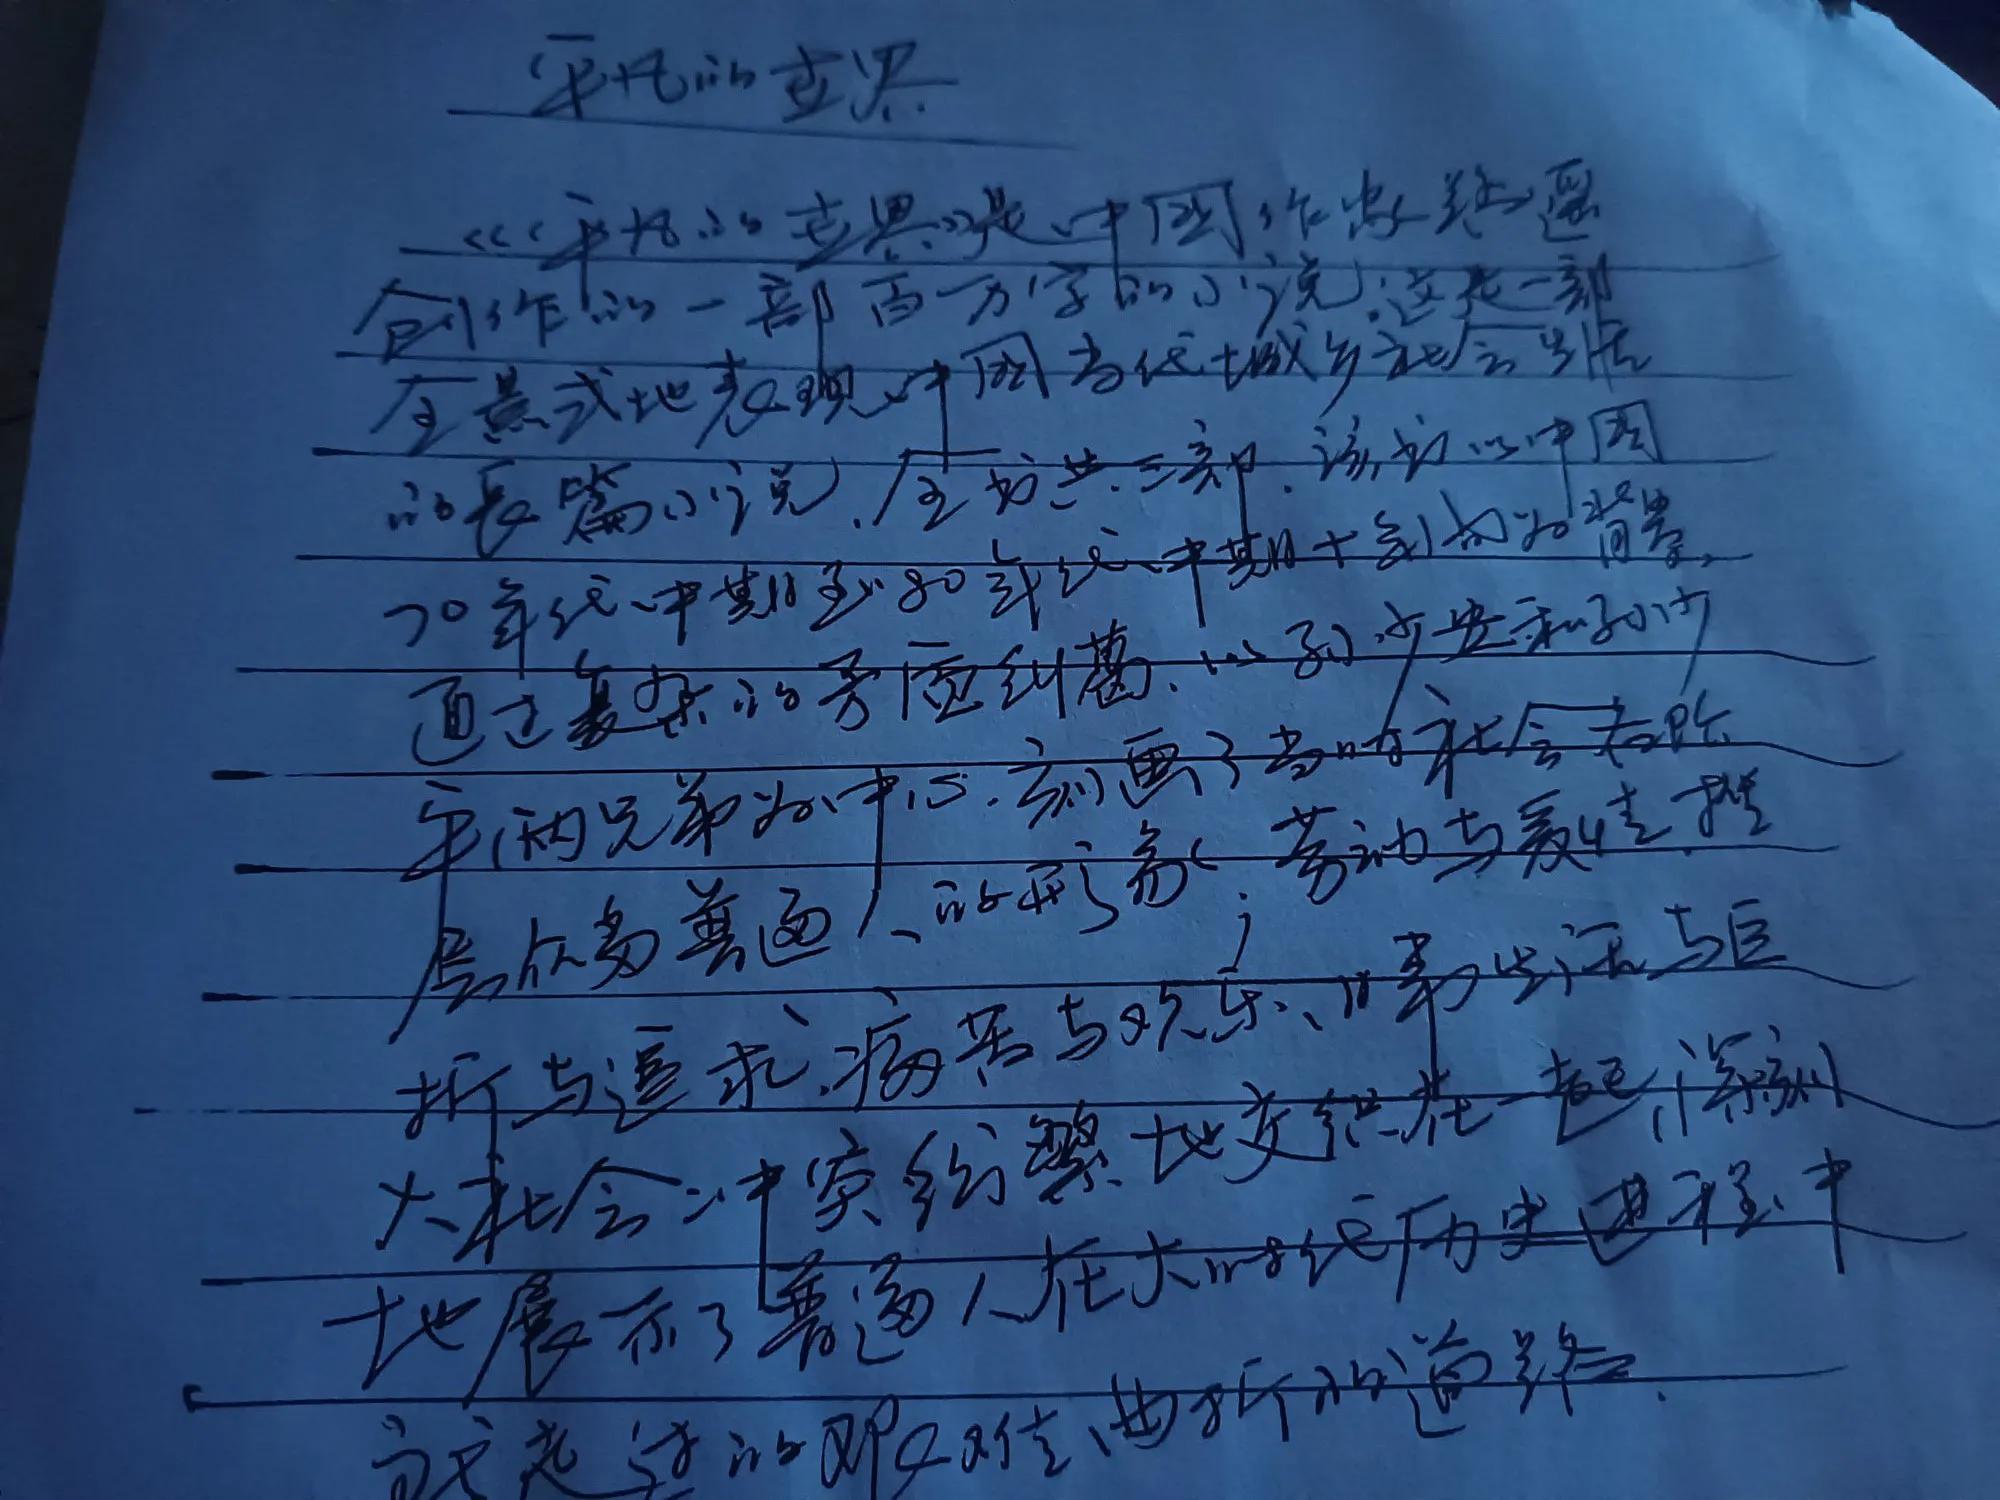 平凡的世界
《平凡的世界》是中国作家路遥
创作的一部百万字的小说.这是一部
全景式地表现中国当代城乡社会生活
的长篇小说.全书共三部.该书以中国
70年代中期到80年代中期十年间为背景,
通过复杂的矛盾纠葛.以孙少安和孙少
平两兄弟为中心.刻画了当时社会各阶
层众多普通人的形象;劳动与爱情.挫
折与追求.痛苦与欢乐.日常生活与巨
大社会冲突纷繁地交织在一起,深刻
地展示了普通人在大时代历史进程中
所走过的艰难曲折的道路.